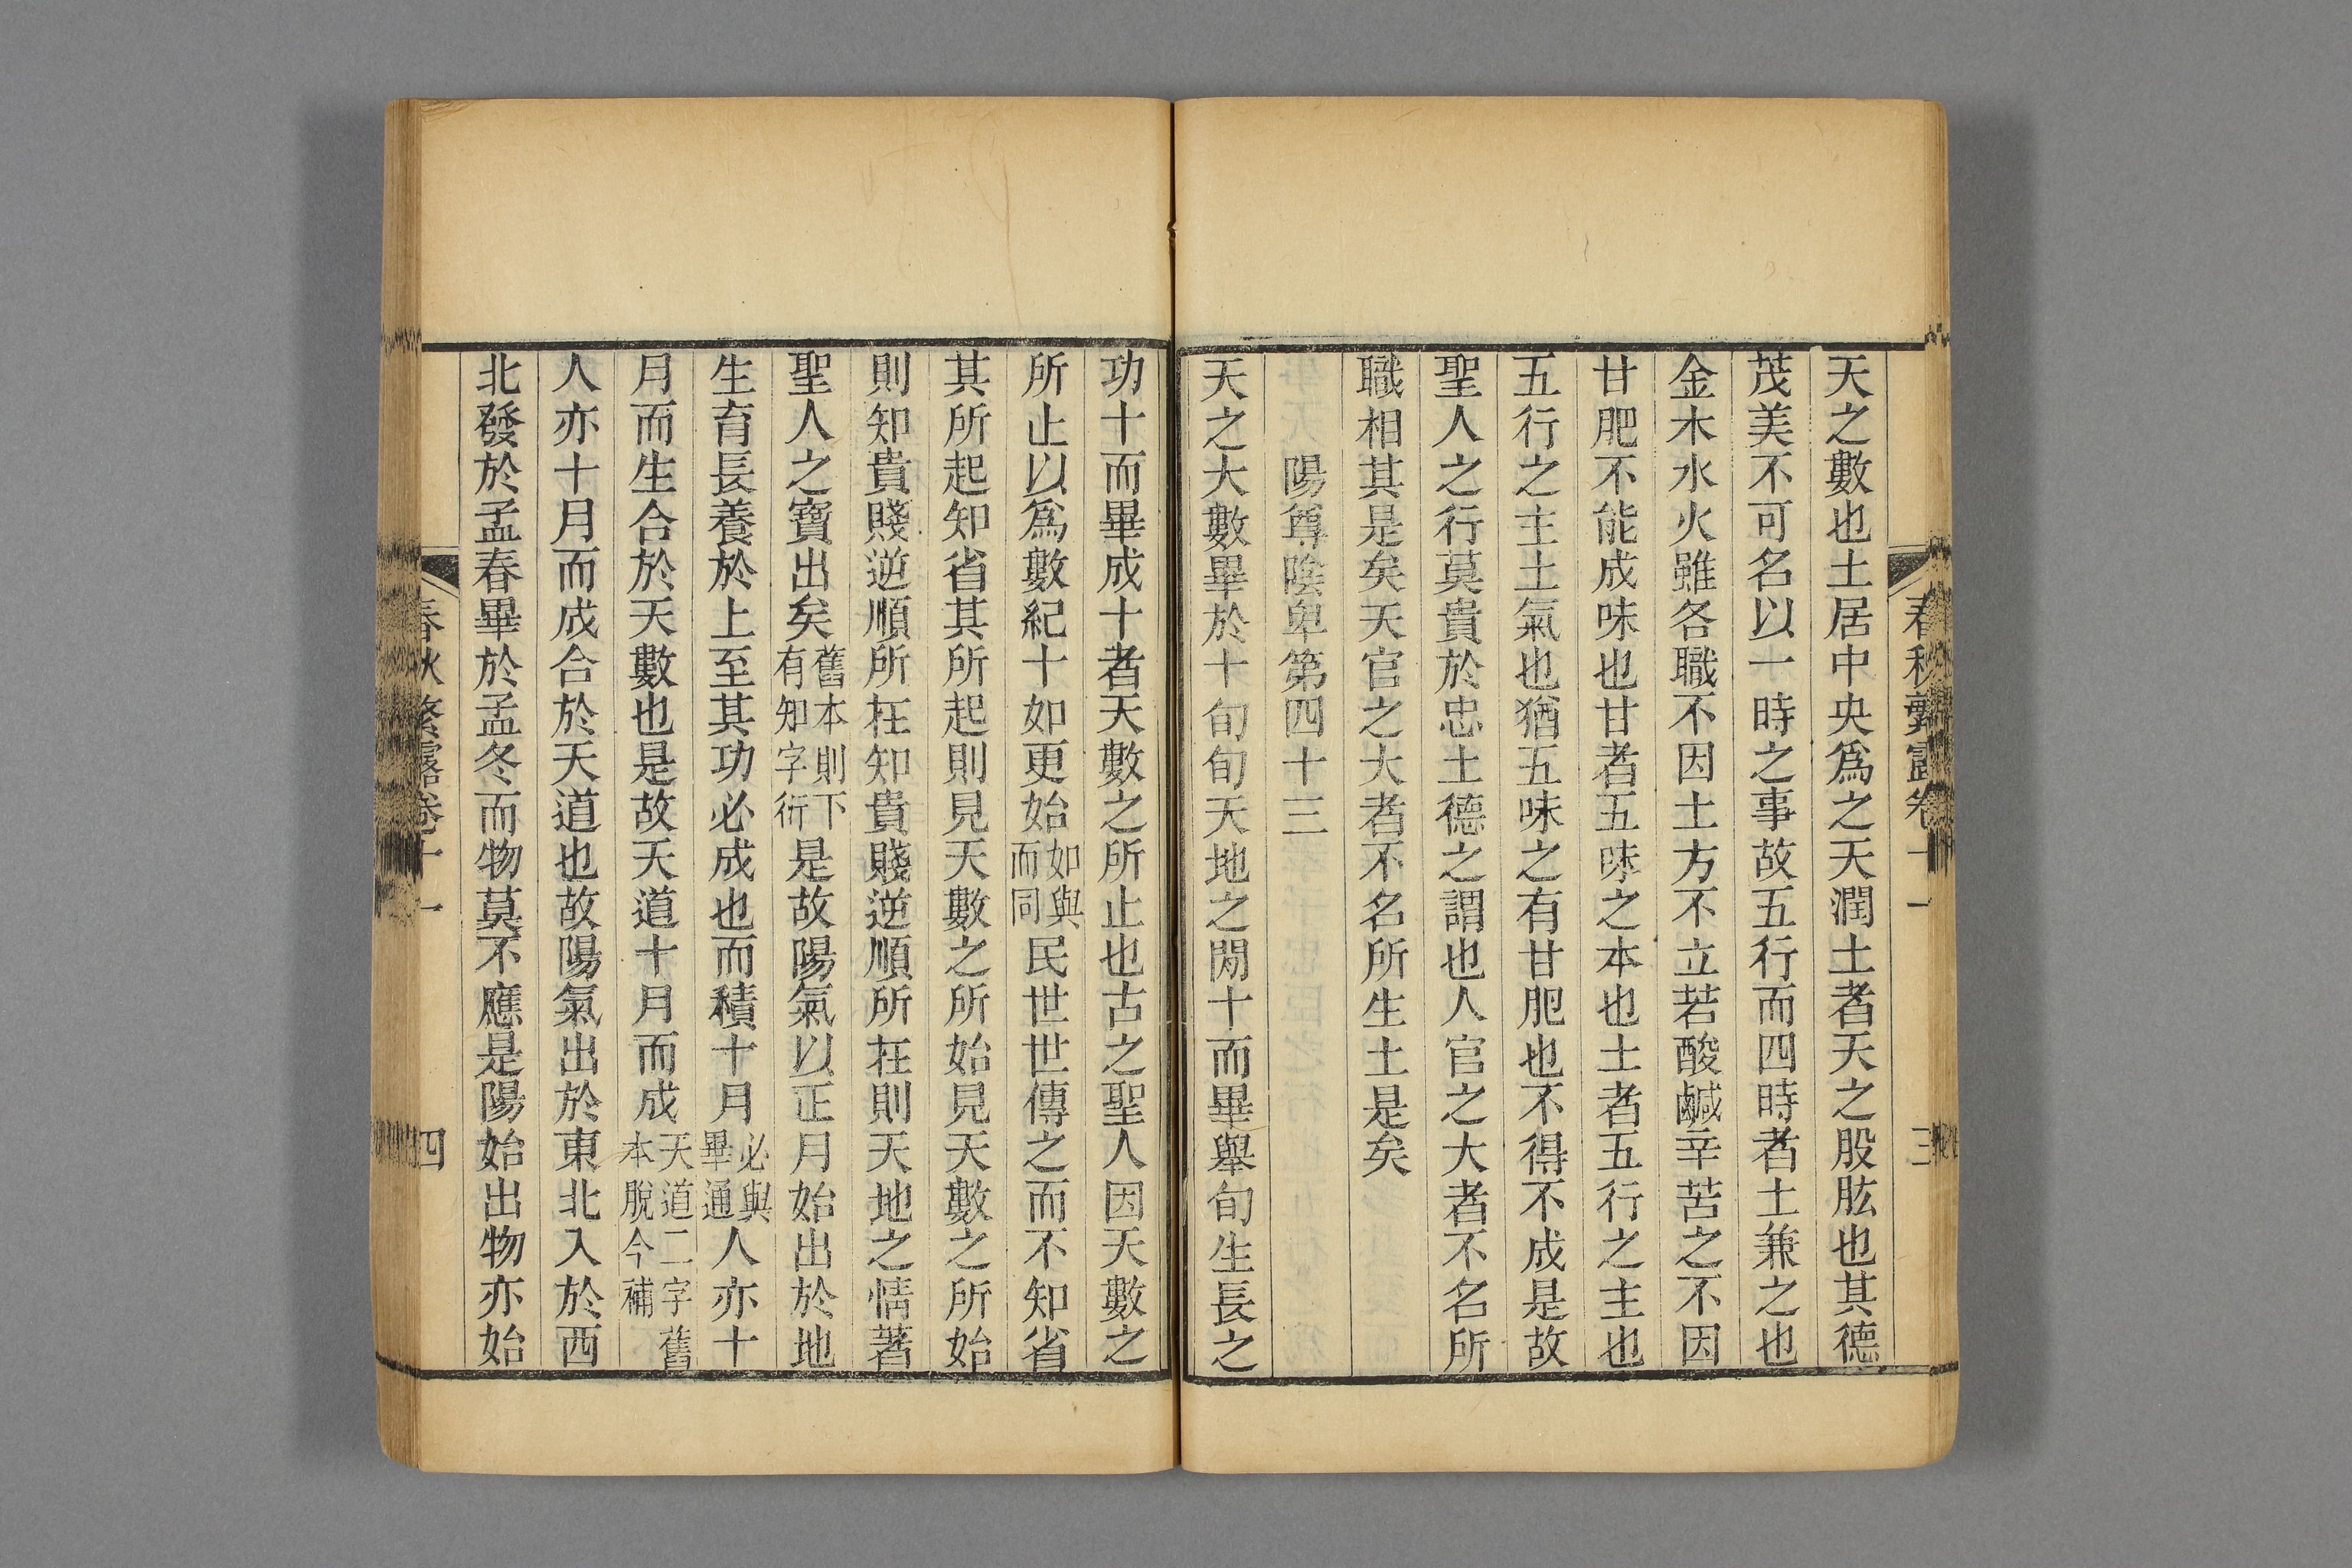 春秋繁露卷十一
三
天之數也土居中央爲之天潤土者天之股肱也其德
茂美不可名以一時之事故五行而四時者土兼之也
金木水火雖各職不因土方不立若酸鹹辛苦之不因
甘肥不能成味也甘者五味之本也土者五行之主也
五行之主土氣也猶五味之有甘肥也不得不成是故
聖人之行莫貴於忠土德之謂也人官之大者不名所
職相其是矣天官之大者不名所生土是矣
陽尊陰卑第四十三
天之大數畢於十旬旬天地之閒十而畢舉旬生長之
功十而畢成十者天數之所止也古之聖人因天數之
所止以爲數紀十如更始如與而同民世世傳之而不知省
其所起知省其所起則見天數之所始見天數之所始
則知貴賤逆順所在知貴賤逆順所在則天地之情著
聖人之寶出矣舊本則下有知字衍是故陽氣以正月始出於地
生育長養於上至其功必成也而積十月必與畢通人亦十
月而生合於天數也是故天道十月而成天道二字舊本脫今補
人亦十月而成合於天道也故陽氣出於東北入於西
北發於孟春畢於孟冬而物莫不應是陽始出物亦始
春秋繁露卷十一
四